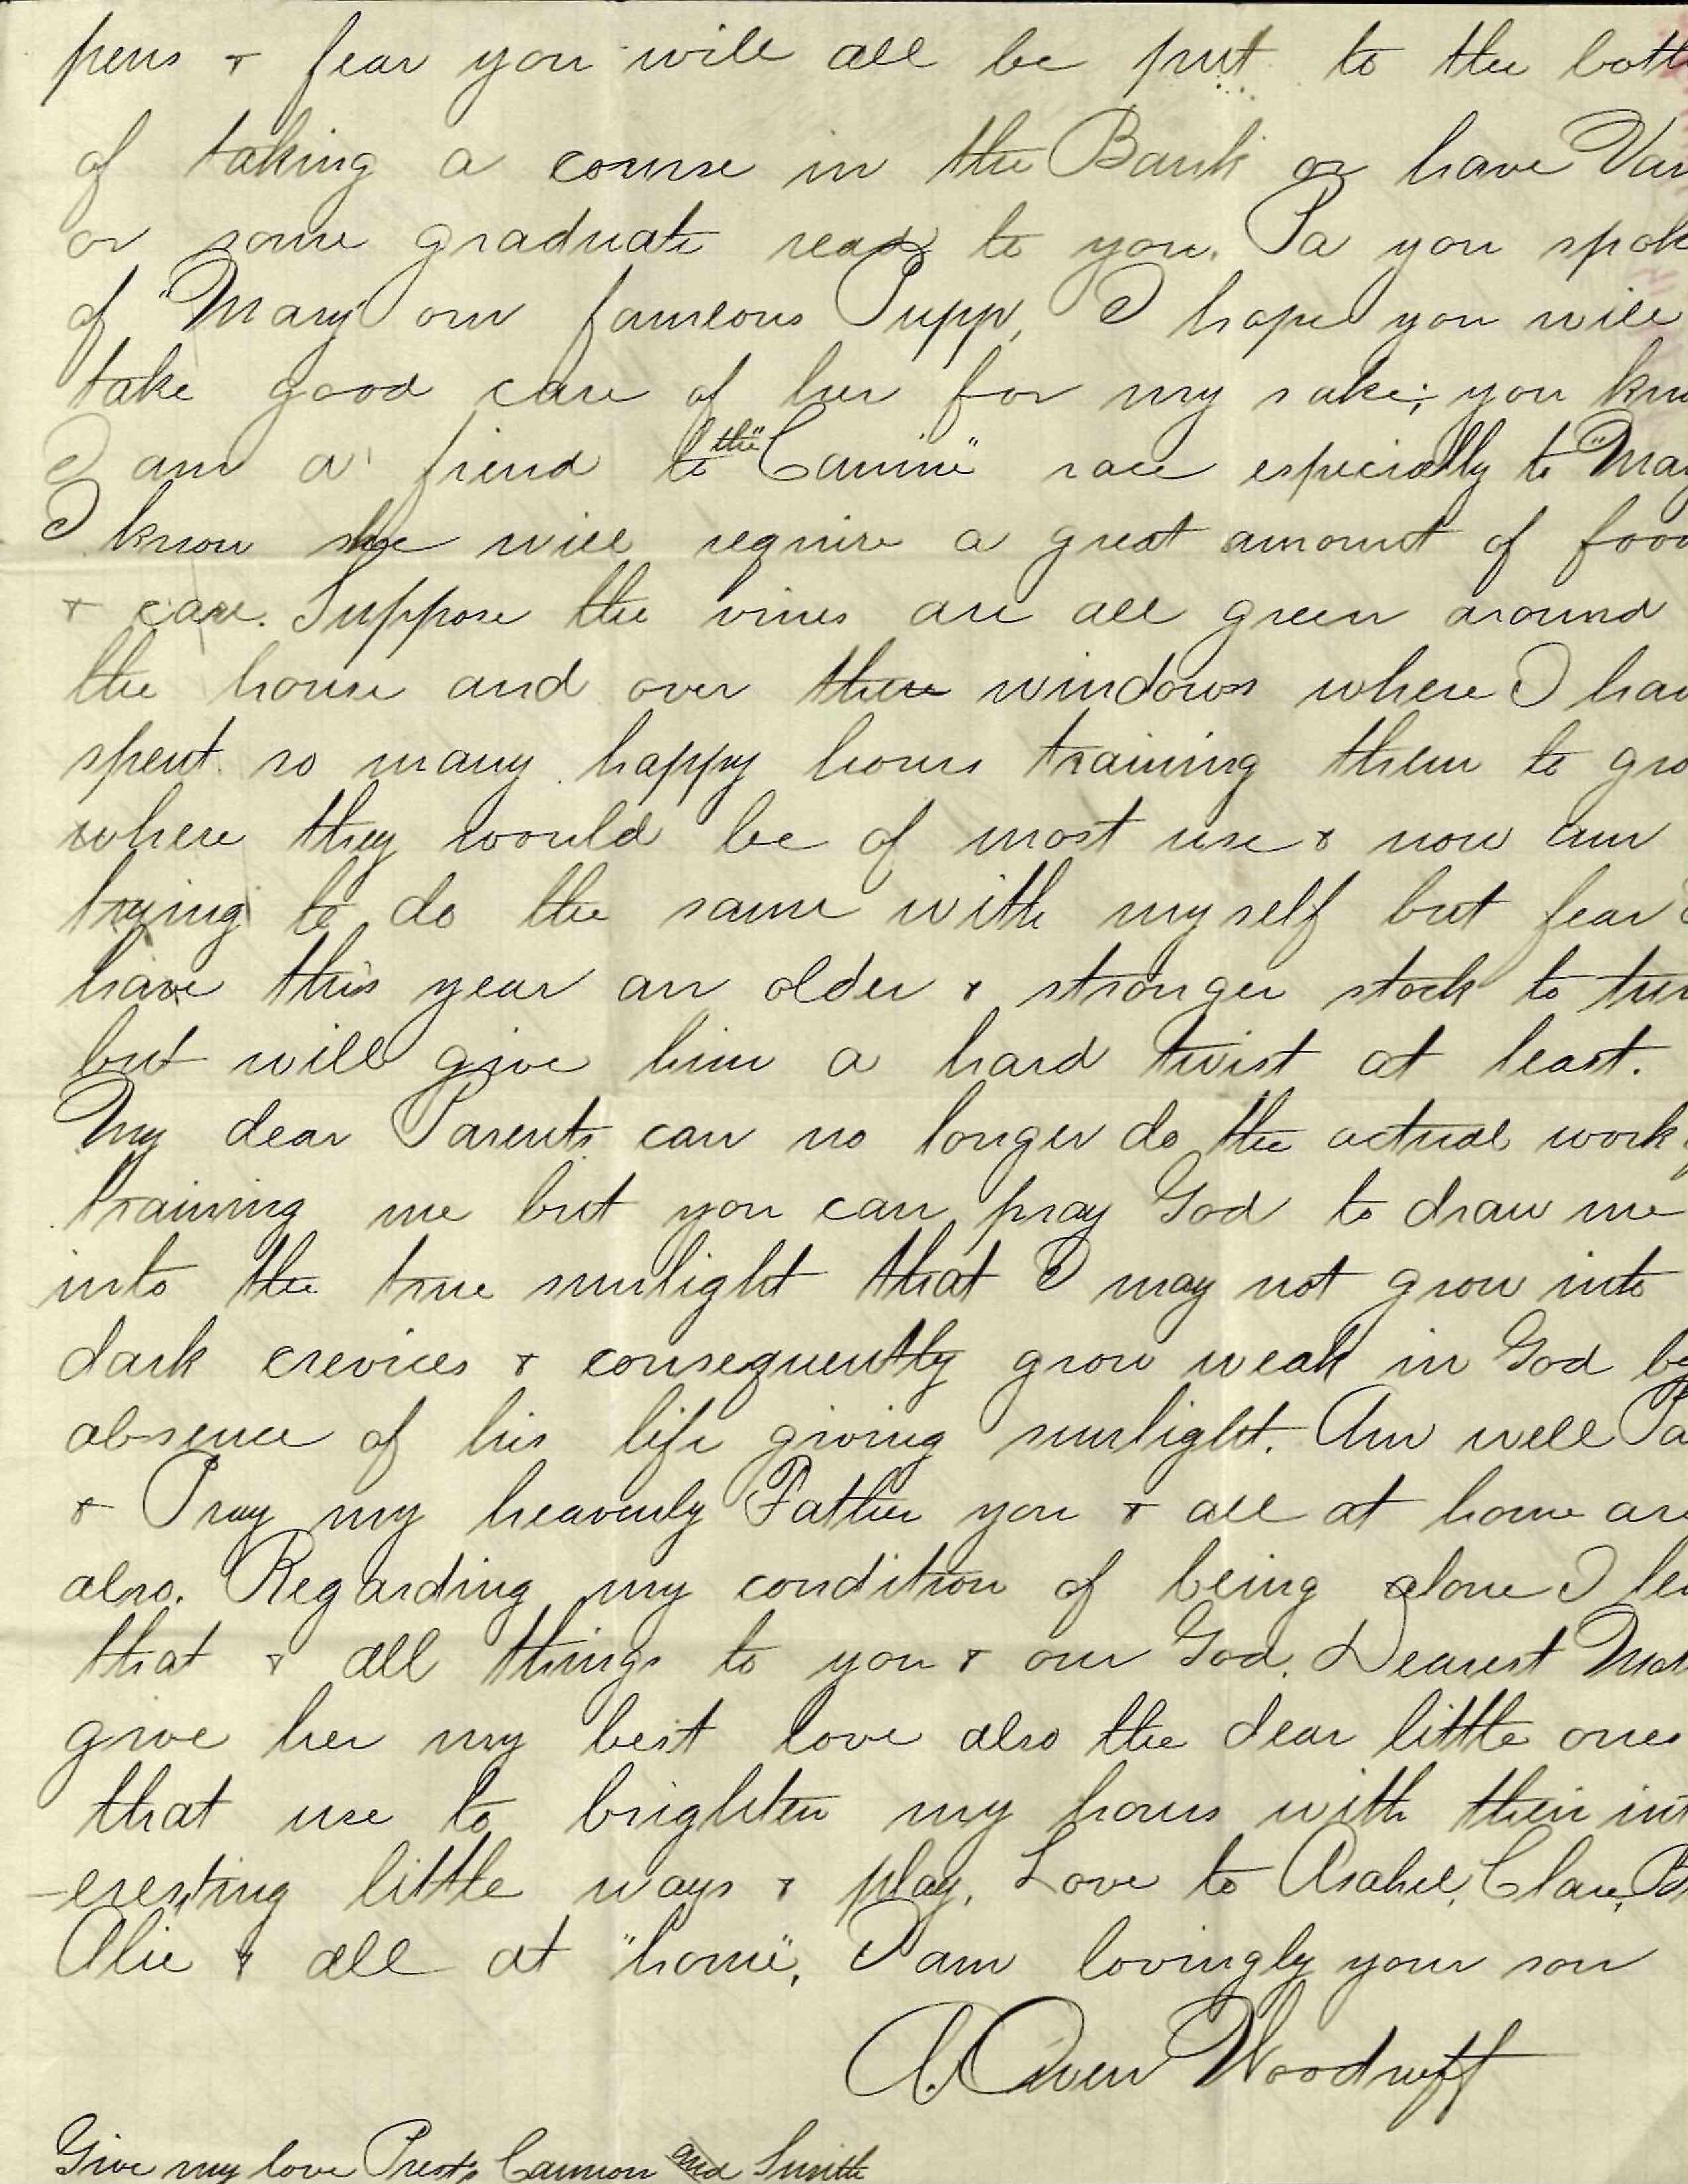 pens & fear you will all be put to the bott
of taking a course in the Bank or have Van
or some graduate read to you. Pa you spok
of "Mary" our fameous Pupp, I hope you will
take good care of her for my sake; you kn
I am a friend to the "Canine" race especially to "Mar
I know she will require a great amount of foo
& care. Suppose the vines are all green around
the house and over there windows where I hav
spent so many happy hours training them to gro
where they would be of most use & now am
trying to do the same with myself but fear I
have this year an older & stronger stock to tur
but will give him a hard twist at least.
My dear Parents can no longer do the actual work
training me but you can pray God to draw me
into the true sunlight that I may not grow into
dark crevices & consequently grow weak in God by
absence of his life giving sunlight. Am well Pa
& Pray my heavenly Father you & all at home are
also. Regarding my condition of being alone I le
that & all things to you & our God. Dearest Ma
give her my best love also the dear little ones
that use to brighten my hours with their int
-eresting little ways & play. Love to Asahel, Clara,
Alie & all at "home", I am lovingly your son
A. Owen Woodruff
Give my love Prests Cannon and Smith